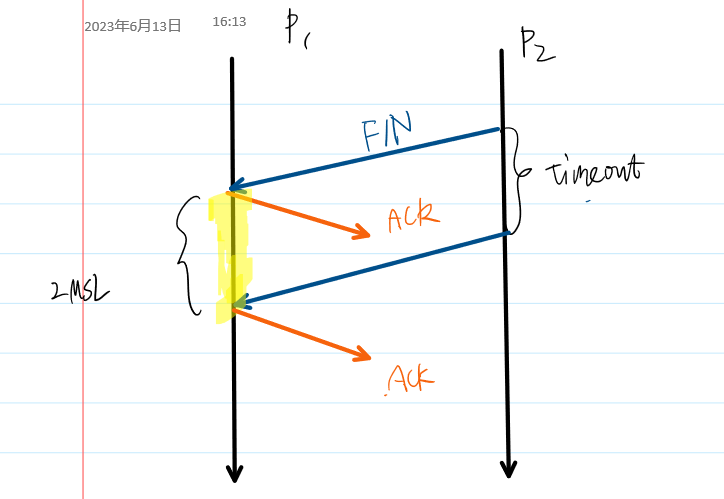 2023年6月13日 16:13
P1
P2
FIN
timeout
ACK
2MSL
ACK